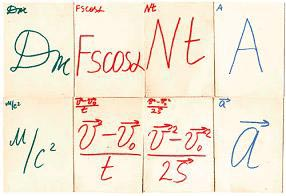 Dm
Dm
Fscosα
Fscosα
Nt
Nt
A
A
м/c²
м/c²
v⃗-v⃗₀/t
v⃗-v⃗₀/t
v⃗²-v⃗₀²/2S⃗
v⃗²-v⃗₀²/2S⃗
a⃗
a⃗